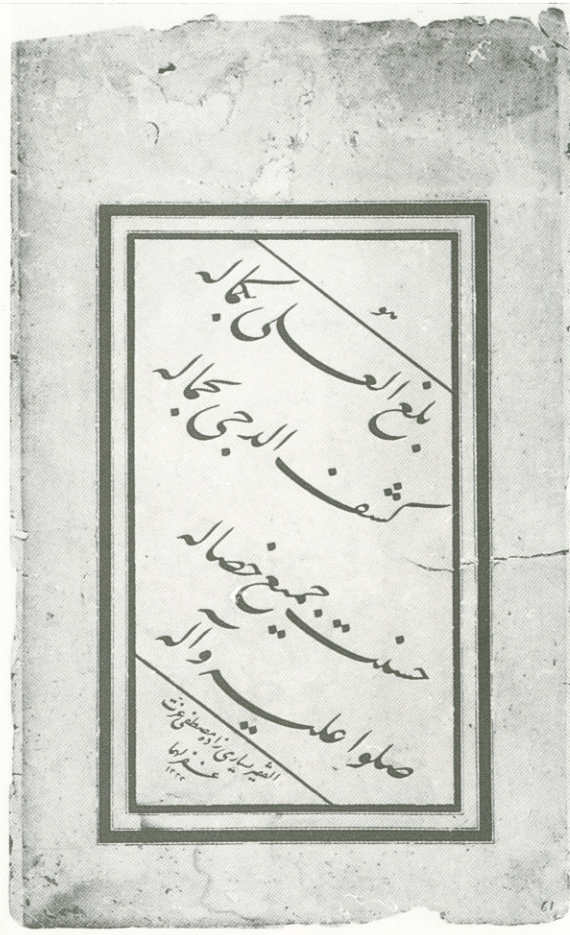 هو
بلغ العلى بكماله
كشف الدجى بجماله
حسنت جميع خصاله
صلوا عليه وآله
الفقير يساري زاده مصطفى عزت
غفر لهما
١٢٢٢
61